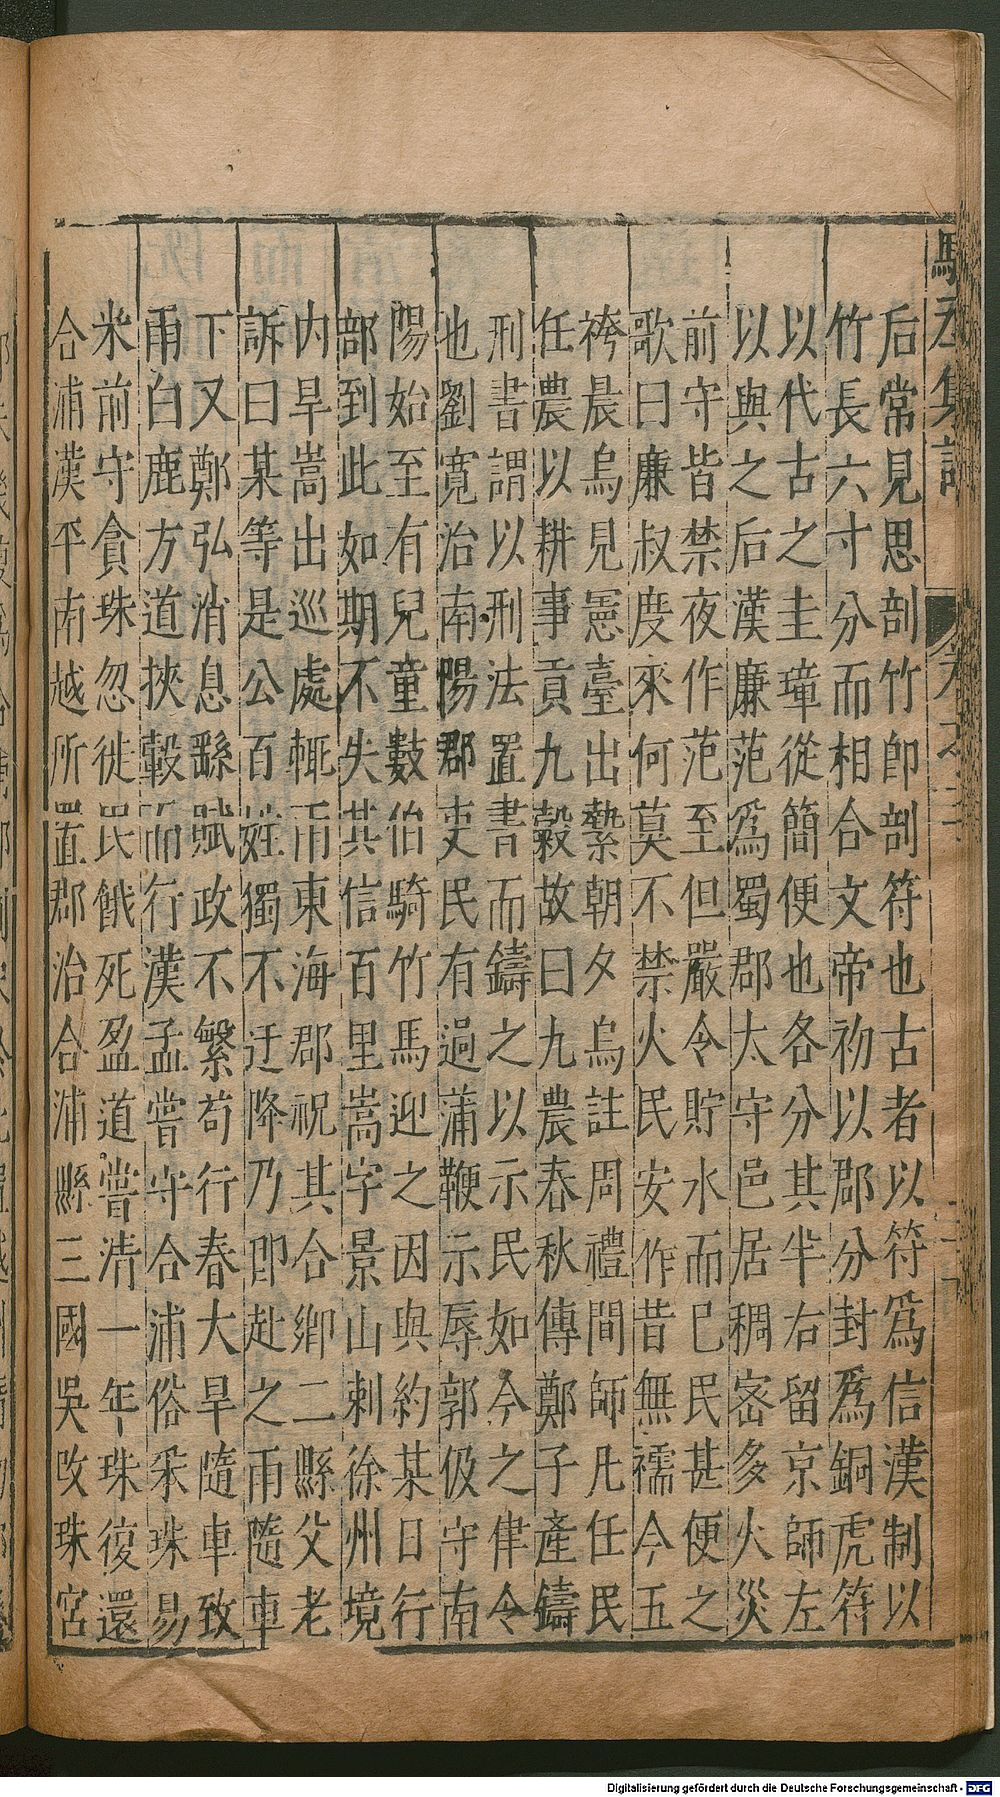 后常見思剖竹卽剖符也古者以符爲信漢制以
竹長六寸分而相合文帝初以郡分封爲銅虎符
以代古之圭璋從簡便也各分其半右留京師左
以與之后漢廉范爲蜀郡太守邑居稠密多火災
前守皆禁夜作范至但嚴令貯水而已民甚便之
歌曰廉叔度來何莫不禁火民安作昔無襦今五
袴晨烏見憲臺出縶朝夕烏註周禮間師凡任民
任農以耕事貢九穀故曰九農春秋傳鄭子產鑄
刑書謂以刑法置書而鑄之以示民如今之律令
也劉寬治南陽郡吏民有過蒲鞭示辱郭伋守南
陽始至有兒童數伯騎竹馬迎之因與約某日行
部到此如期不失其信百里嵩字景山刺徐州境
内旱嵩出巡處輒雨東海郡祝其合鄉二縣父老
訴曰某等是公百姓獨不迂降乃卽赴之雨隨車
下又鄭弘消息繇賦政不繁苟行春大旱隨車致
雨白鹿方道挾轂而行漢孟嘗守合浦俗采珠易
米前守貪珠忽徙民餓死盈道嘗清一年珠復還
合浦漢平南越所置郡治合浦縣三國吳改珠宮
Digitalisierung gefördert durch die Deutsche Forschungsgemeinschaft - DFG